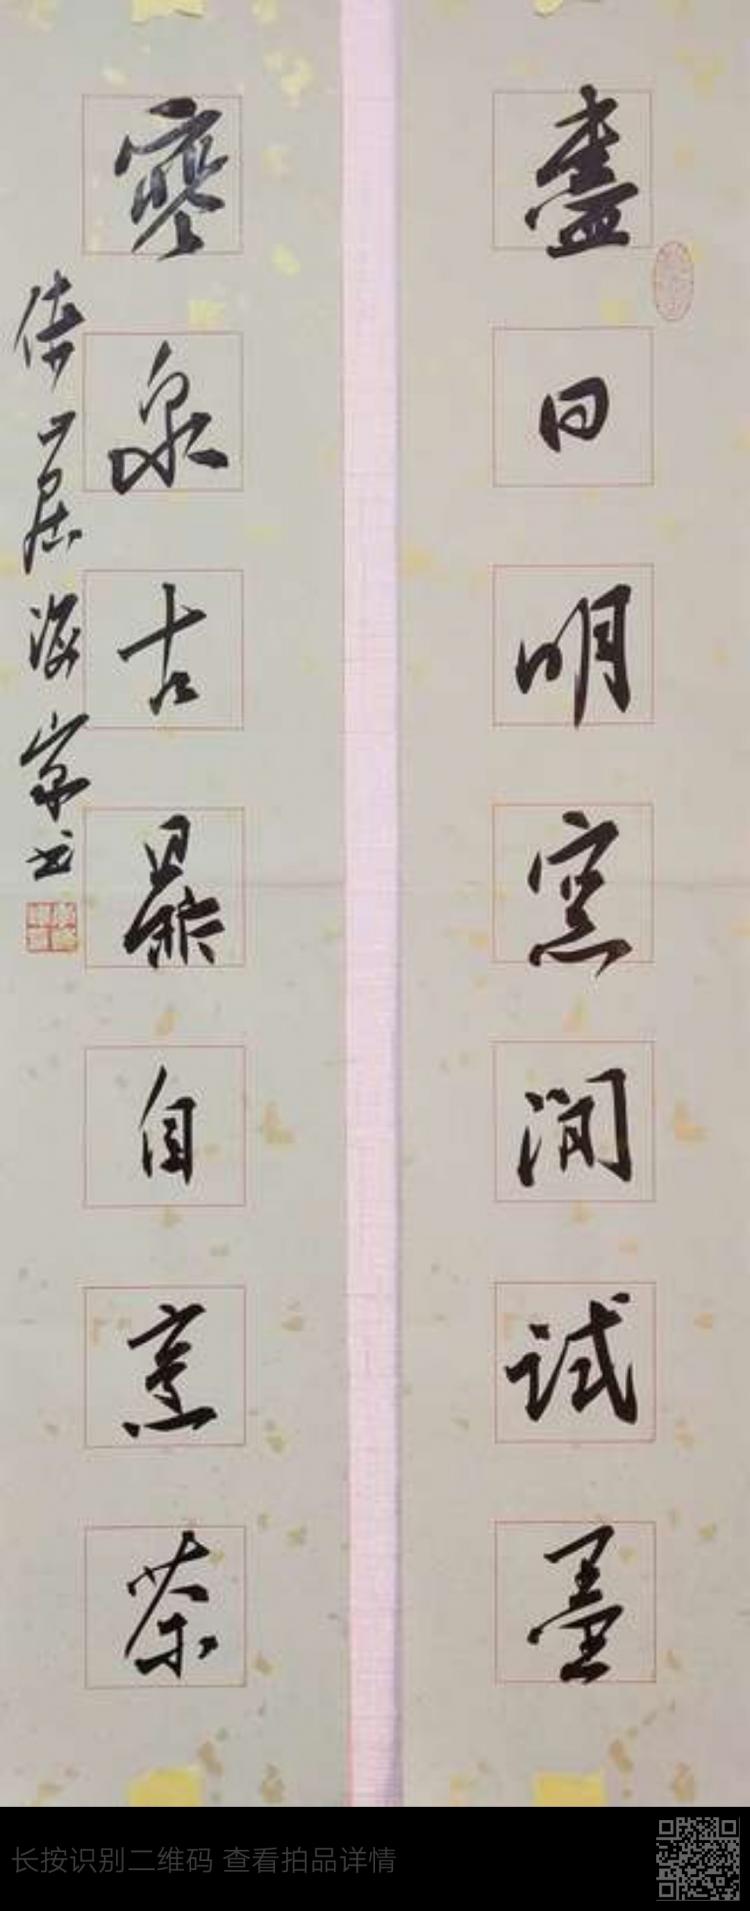 盡日明窓閒試墨
寒泉古鼎自烹茶
倚山居海
书
长按识别二维码 查看拍品详情